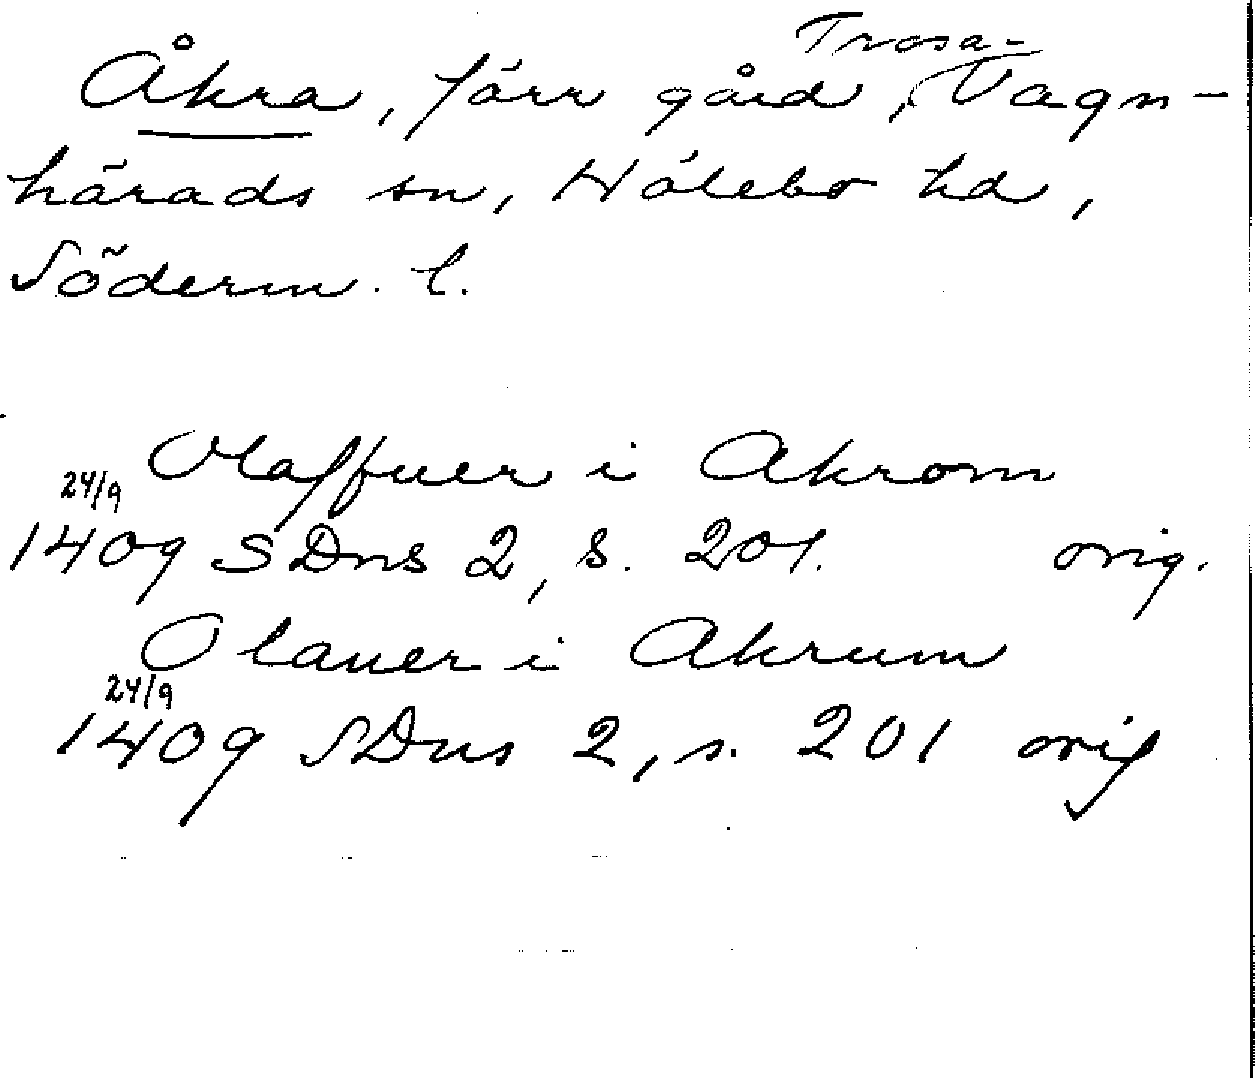 Åkra, förr gård, Trosa-Vagn-
härads sn, Hölebo hd,
Söderm. l.
Olaffuer i Akrom
24/9
1409 SDns 2, s. 201. orig.
Olauer i Akrum
24/9
1409 SDns 2, s. 201 orig